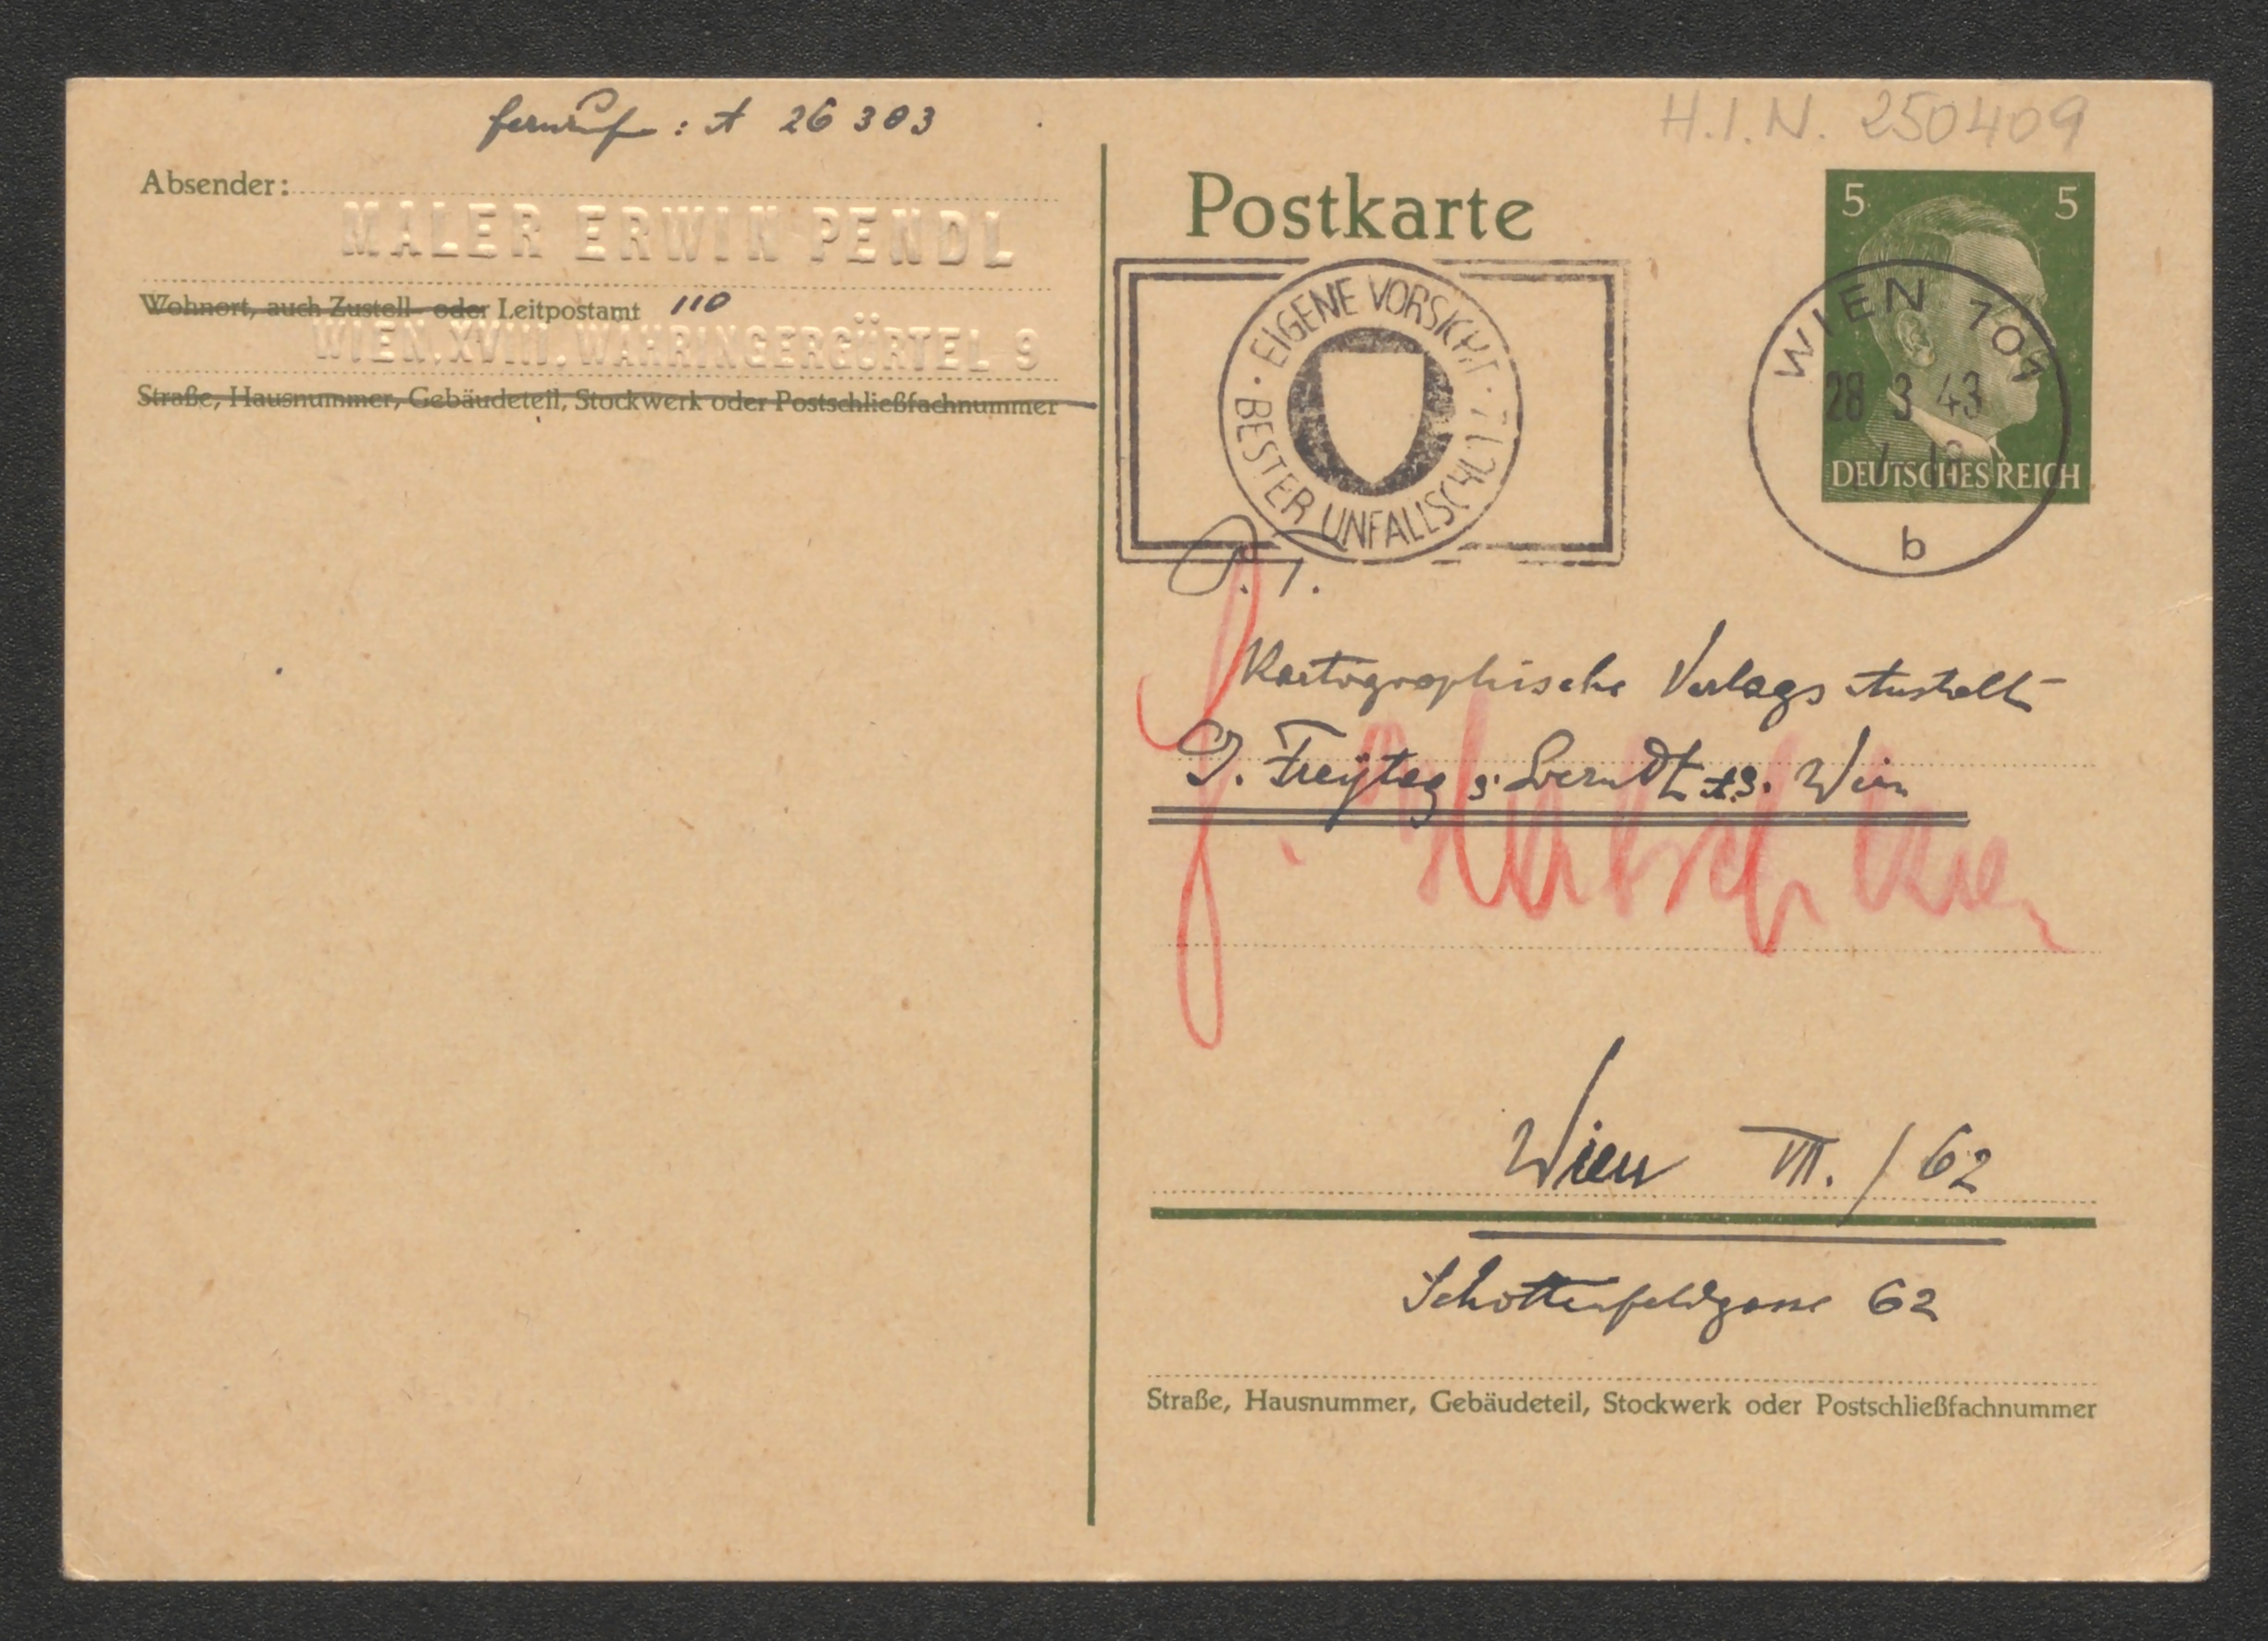 Fernruf: A 26 3 0 3
Absender:
MALER ERWIN PENDL
Wohnort, auch Zustell- oder Leitpostamt 110
WIEN, XVIII. WÄHRINGERGÜRTEL 9
Straße, Hausnummer, Gebäudeteil, Stockwerk oder Postschließfachnummer
H.I.N. 250409
Postkarte
5 5
DEUTSCHES REICH
· EIGENE VORSICHT ·
BESTER UNFALLSCHUTZ
WIEN 101
28 3 43
b
P. T.
Kartographische Verlags Anstalt
G. Freytag & Berndt A.G. Wien
Wien VII. / 62
Schottenfeldgasse 62
Straße, Hausnummer, Gebäudeteil, Stockwerk oder Postschließfachnummer